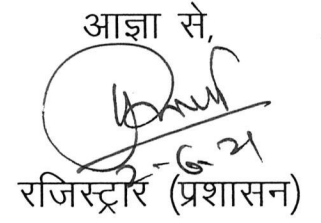 आज्ञा से,
रजिस्ट्रार (प्रशासन)